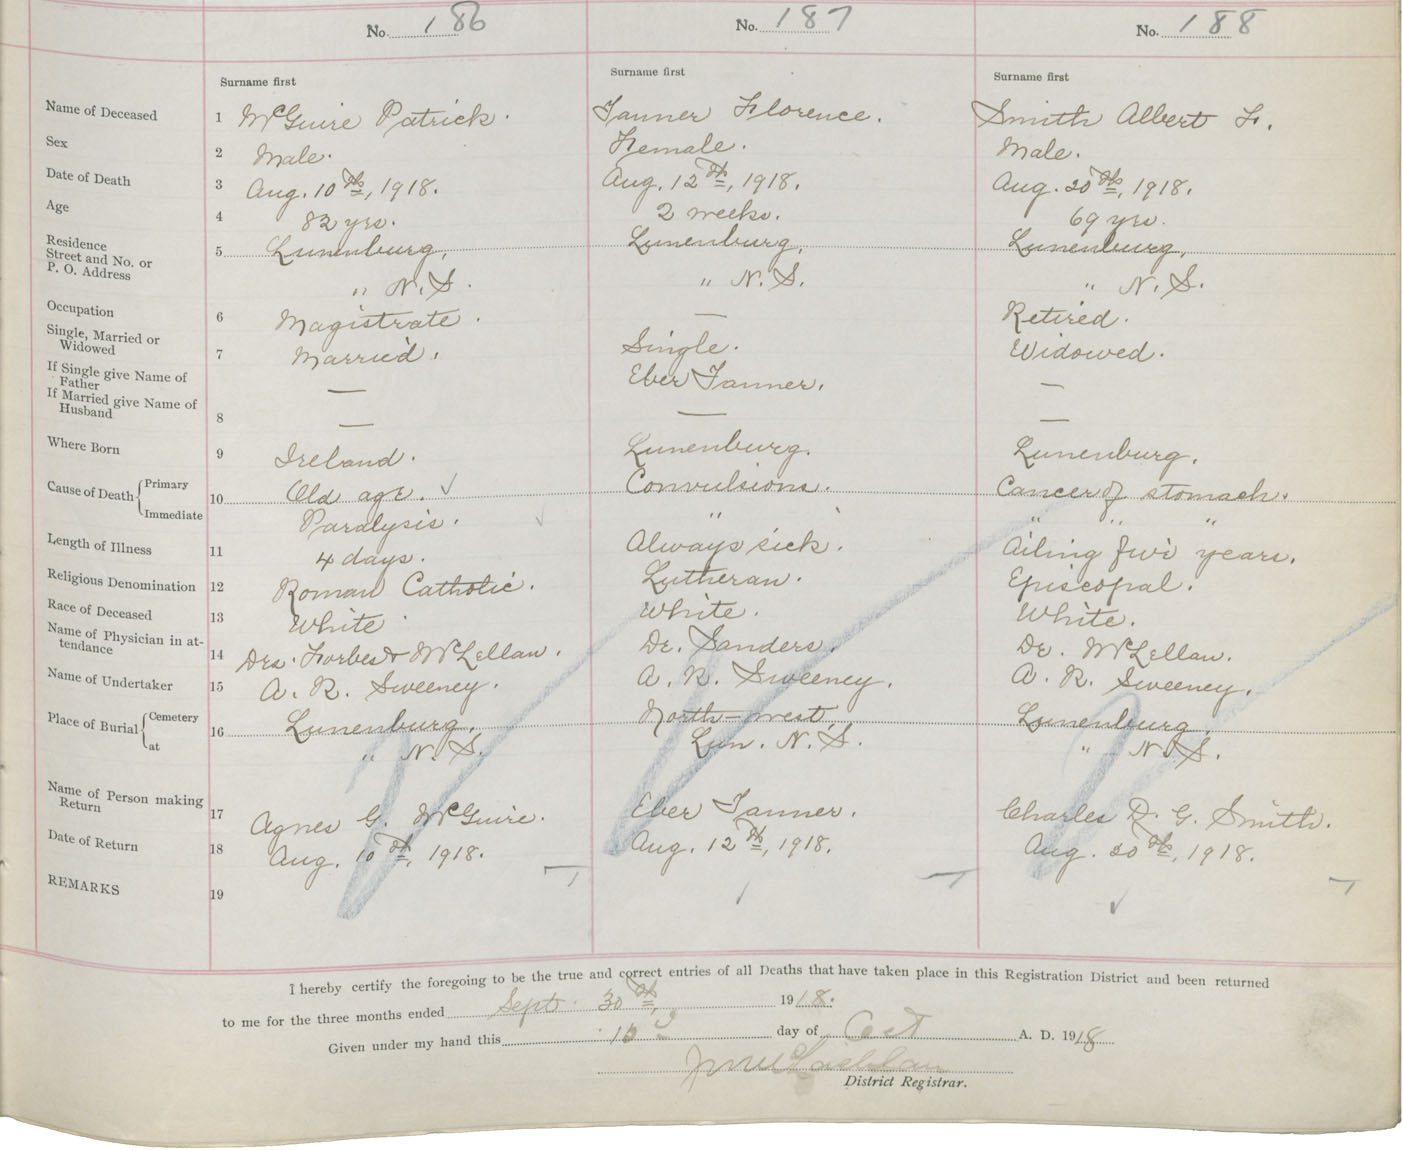 No. 186
No. 187
No. 188
Surname first
Surname first
Surname first
Name of Deceased 1 McGuire Patrick. Tanner Florence. Smith Albert F.
Sex 2 Male. Female. Male.
Date of Death 3 Aug. 10th, 1918. Aug. 12th, 1918. Aug. 20th, 1918.
Age 4 82 yrs. 2 weeks. 69 yrs.
Residence
Street and No. or
P. O. Address
5 Lunenburg, Lunenburg, Lunenburg,
" N. S. " N. S. " N. S.
Occupation 6 Magistrate. — Retired.
Single, Married or
Widowed
7 Married. Single. Widowed.
If Single give Name of
Father
— Eber Tanner. —
If Married give Name of
Husband
8 — — —
Where Born 9 Ireland. Lunenburg. Lunenburg.
Cause of Death { Primary
Immediate
10 Old age. ✓ Convulsions. Cancer of stomach.
Paralysis. " " " "
Length of Illness 11 4 days. Always sick. Ailing five years.
Religious Denomination 12 Roman Catholic. Lutheran. Episcopal.
Race of Deceased 13 White White. White.
Name of Physician in at-
tendance
14 Drs. Forbes & McLellan. Dr. Sanders. Dr. McLellan.
Name of Undertaker 15 A. R. Sweeney. A. R. Sweeney. A. R. Sweeney.
Place of Burial { Cemetery
at
16 Lunenburg, North-west, Lunenburg,
" N. S. Lun. N. S. " N. S.
Name of Person making
Return
17 Agnes G. McGuire. Eber Tanner. Charles D. G. Smith.
Date of Return 18 Aug. 10th, 1918. Aug. 12th, 1918. Aug. 20th, 1918.
REMARKS 19
I hereby certify the foregoing to be the true and correct entries of all Deaths that have taken place in this Registration District and been returned
to me for the three months ended Sept. 30th, 1918.
Given under my hand this day of Oct A. D. 1918
District Registrar.